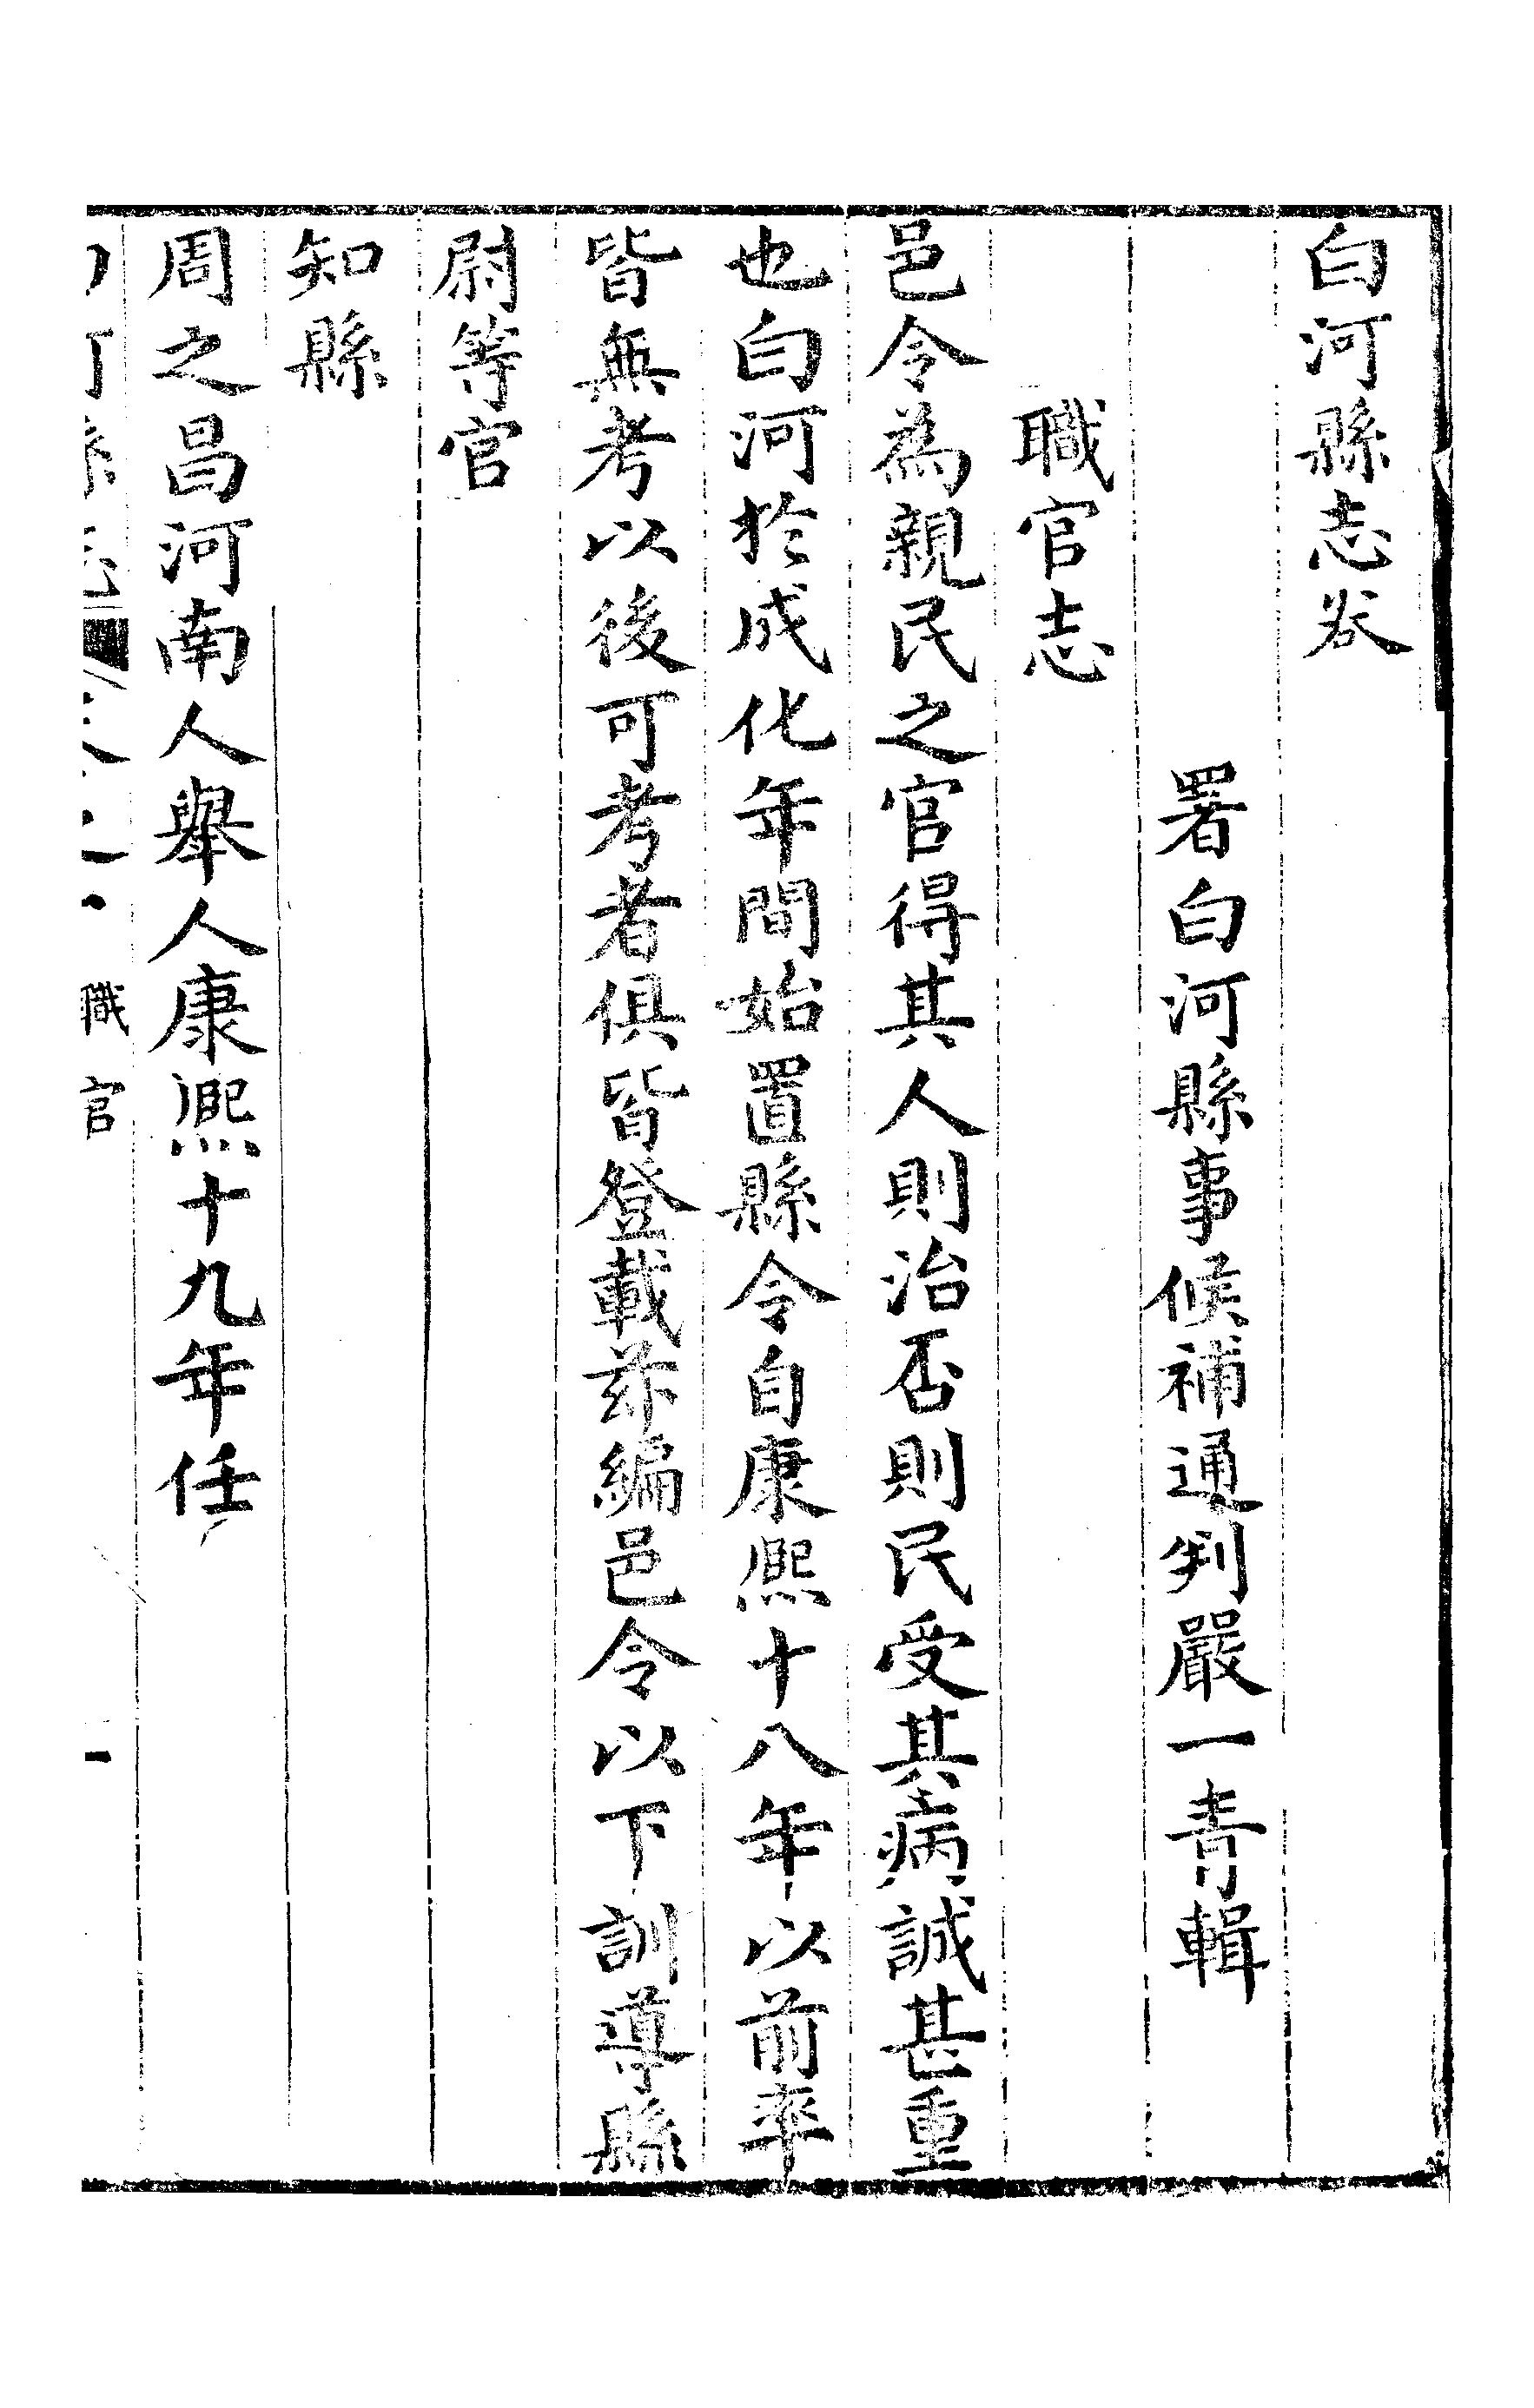 白河縣志卷
署白河縣事候補通判嚴一青輯
職官志
邑令為親民之官得其人則治否則民受其病誠甚重
也白河於成化年間始置縣令自康熙十八年以前率
皆無考以後可考者俱皆登載茲編邑令以下訓導縣
尉等官
知縣
周之昌河南人舉人康熙十九年任
職官 一